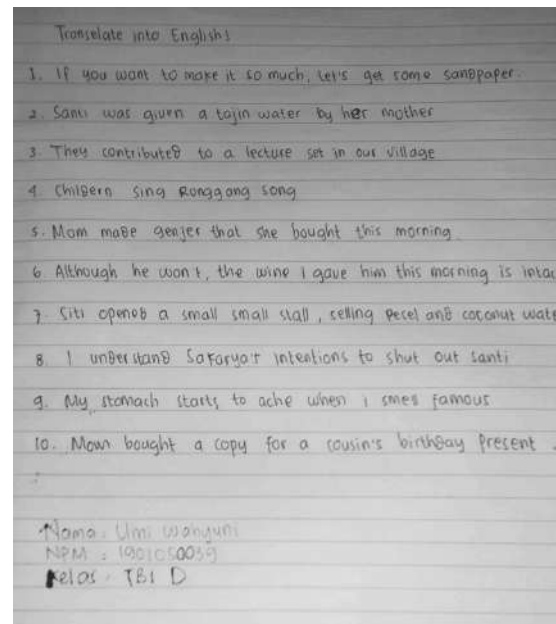 Transelate into English!
1. If you want to make it so much, let's get some sandpaper.
2. Santi was given a tajin water by her mother
3. They contributed to a lecture set in our village
4. Childern sing Ronggang song
5. Mom made genjer that she bought this morning.
6. Although he won't, the wine I gave him this morning is intac
7. Siti opened a small small stall, selling Pecel and coconut wate
8. I understand Sakarya's intentions to shut out santi
9. My stomach starts to ache when I smel famous
10. Mom bought a copy for a cousin's birthday Present.
Nama: Umi Wahyuni
NPM: 1901050039
Kelas: TBI D